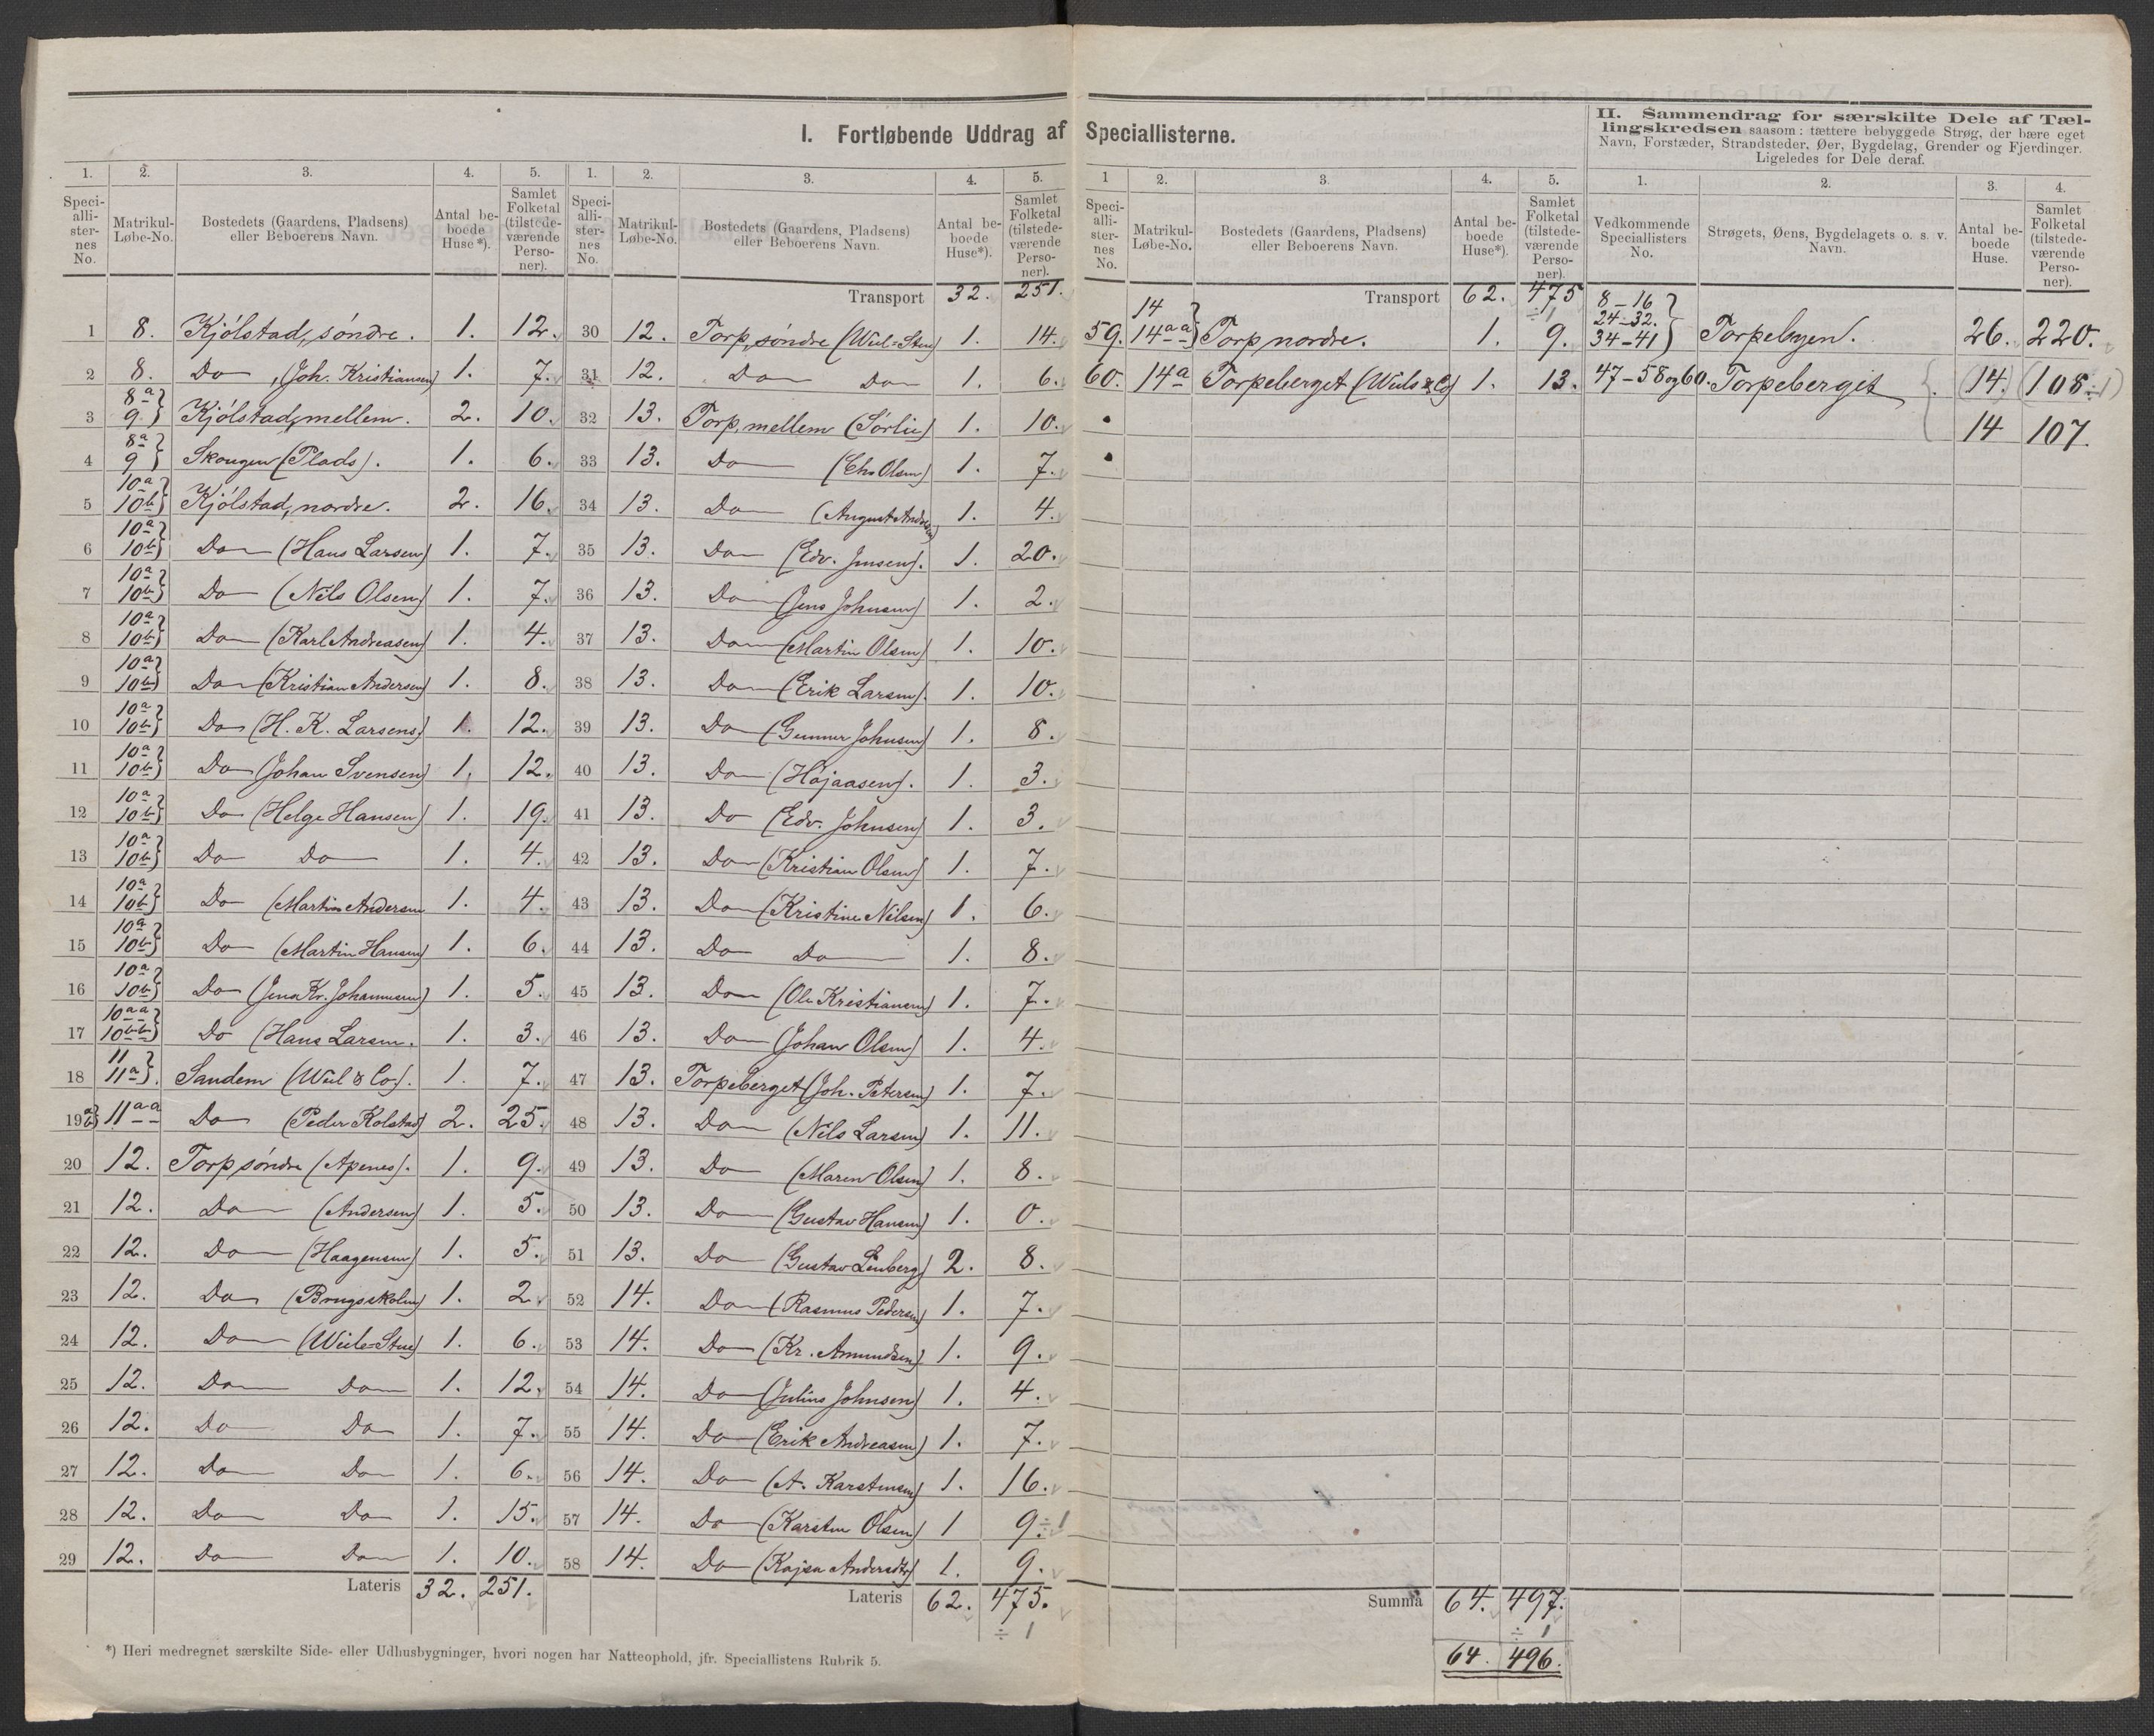 I. Fortløbende Uddrag af Speciallisterne.
II. Sammendrag for særskilte Dele af Tæl-
lingskredsen saasom: tættere bebyggede Strøg, der bære eget
Navn, Forstæder, Strandsteder, Øer, Bygdelag, Grender og Fjerdinger.
Ligeledes for Dele deraf.
1. 2. 3. 4. 5.
Speciallisternes No. Matrikul-Løbe-No. Bostedets (Gaardens, Pladsens) eller Beboerens Navn. Antal beboede Huse*). Samlet Folketal (tilstedeværende Personer).
1 8. Kjølstad, søndre. 1. 12.
2 8. Do, (Joh. Kristiansen) 1. 7.
3 8a 9.} Kjølstad, mellem. 2. 10.
4 8a 9} Skougen (Plads). 1. 6.
5 10a 10b} Kjölstad, nordre. 2. 16.
6 10a 10b} Do (Hans Larsen) 1. 7.
7 10a 10b} Do (Nils Olsen) 1. 7.
8 10a 10b} Do (Karl Andreasen) 1. 4.
9 10a 10b} Do (Kristian Andersen) 1. 8.
10 10a 10b} Do (H. K. Larsens) 1. 12.
11 10a 10b} Do (Johan Svensen) 1. 12.
12 10a 10b} Do (Helge Hansen) 1. 19.
13 10a 10b} Do Do 1. 4.
14 10a 10b} Do (Martin Andersen 1. 4.
15 10a 10b} Do (Martin Hansen) 1. 6.
16 10a 10b} Do (Jens Kr. Johannesen) 1. 5.
17 10aa 10bb} Do (Hans Larsen. 1. 3.
18 11 11a}. Sandem (Wiel & Co). 1. 7.
19 a b} 11aa Do (Peder Kolstad) 2. 25.
20 12. Torp søndre (Apenes). 1. 9.
21 12. Do (Andersen) 1. 5.
22 12. Do (Haagensen) 1. 5.
23 12. Do (Brugsskolen) 1. 2.
24 12. Do (Wiels-Stue) 1. 6.
25 12. Do Do 1. 12.
26 12. Do Do 1. 7.
27 12. Do Do 1. 6.
28 12. Do Do 1. 15.
29 12. Do Do 1. 10.
Lateris 32. 251.
*) Heri medregnet særskilte Side- eller Udhusbygninger, hvori nogen har Natteophold, jfr. Speciallistens Rubrik 5.
1. 2. 3. 4. 5.
Speciallisternes No. Matrikul-Løbe-No. Bostedets (Gaardens, Pladsens) eller Beboerens Navn. Antal beboede Huse*). Samlet Folketal (tilstedeværende Personer).
Transport 32. 251.
30 12. Torp, søndre (Wiel-Stue) 1. 14.
31 12. Do Do 1. 6.
32 13. Torp, mellem (Sørlie) 1. 10.
33 13. Do (Chr Olsen) 1. 7.
34 13. Do (August Andresen) 1. 4.
35 13. Do (Edv. Jensen). 1. 20.
36 13. Do (Jens Johnsen) 1. 2.
37 13. Do (Martin Olsen) 1. 10.
38 13. Do (Erik Larsen). 1. 10.
39 13. Do (Gunner Johnsen) 1. 8.
40 13. Do (Højaasen). 1. 3.
41 13. Do (Edv. Johnsen) 1. 3.
42 13. Do (Kristian Olsen) 1. 7.
43 13. Do (Kristine Nilsen) 1. 6.
44 13. Do Do 1. 8.
45 13. Do (Ole Kristiansen) 1. 7.
46 13. Do (Johan Olsen) 1. 4.
47 13. Torpeberget (Joh. Petersen) 1. 7.
48 13. Do (Nils Larsen) 1. 11.
49 13. Do (Maren Olsen) 1. 8.
50 13. Do (Gustav Hansen) 1. 0.
51 13. Do (Gustav Linberg) 2. 8.
52 14. Do (Rasmus Pedersen) 1. 7.
53 14. Do (Kr. Amundsen) 1. 9.
54 14. Do (Julius Johnsen) 1. 4.
55 14. Do (Erik Andreasen) 1. 7.
56 14. Do (A. Karstensen) 1. 16.
57 14. Do (Karsten Olsen) 1 9. ÷ 1
58 14. Do (Kajsa Andersdtr) 1. 9.
Lateris 62. 475.
÷ 1
1 2. 3. 4. 5.
Speciallisternes No. Matrikul-Løbe-No. Bostedets (Gaardens, Pladsens) eller Beboerens Navn. Antal beboede Huse*). Samlet Folketal (tilstedeværende Personer).
Transport 62. 475
÷ 1
59. 14 14aa} Torp nordre. 1. 9.
60. 14a Torpeberget (Wiels & Co) 1. 13.
Summa 64. 497.
÷ 1
64. 496.
1. 2. 3. 4.
Vedkommende Speciallisters No. Strøgets, Øens, Bygdelagets o. s. v. Navn. Antal beboede Huse. Samlet Folketal (tilstedeværende Personer).
8-16 24-32. 34-41} Torpebyen. 26. 220.
47-58 og 60. Torpeberget (14. (108 ÷ 1)
14 107.